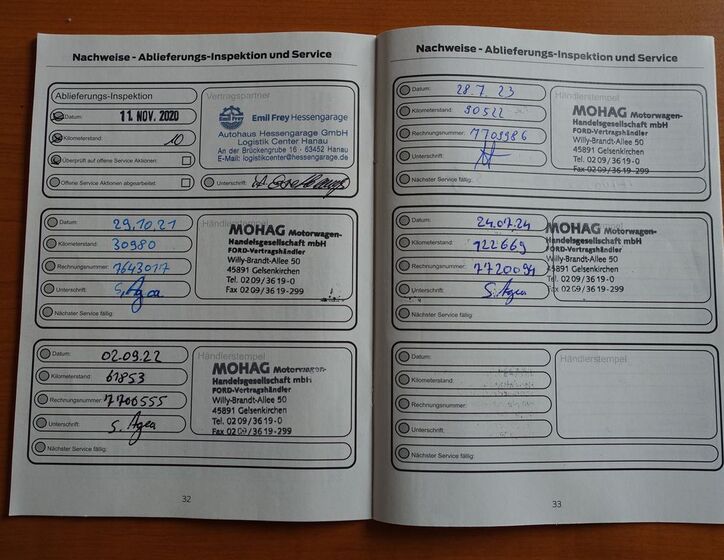 Nachweise - Ablieferungs-Inspektion und Service
Ablieferungs-Inspektion
Datum: 11. NOV. 2020
Kilometerstand: 10
Überprüft auf offene Service Aktionen:
Offene Service Aktionen abgearbeitet:
Vertragspartner
Emil Frey Hessengarage
Autohaus Hessengarage GmbH
Logistik Center Hanau
An der Brückengrube 16 - 63452 Hanau
E-Mail: logistikcenter@hessengarage.de
Unterschrift:
Datum: 29.10.21
Kilometerstand: 30980
Rechnungsnummer: 7643017
Unterschrift: S. Agca
Nächster Service fällig:
Händlerstempel
MOHAG Motorwagen-
Handelsgesellschaft mbH
FORD-Vertragshändler
Willy-Brandt-Allee 50
45891 Gelsenkirchen
Tel. 0209/3619-0
Fax 0209/3619-299
Datum: 02.09.22
Kilometerstand: 61853
Rechnungsnummer: 7700555
Unterschrift: S. Agca
Nächster Service fällig:
Händlerstempel
MOHAG Motorwagen-
Handelsgesellschaft mbH
FORD-Vertragshändler
Willy-Brandt-Allee 50
45891 Gelsenkirchen
Tel. 0209/3619-0
Fax 0209/3619-299
32
Nachweise - Ablieferungs-Inspektion und Service
Datum: 28.7.23
Kilometerstand: 90522
Rechnungsnummer: 7709586
Unterschrift:
Nächster Service fällig:
Händlerstempel
MOHAG Motorwagen-
Handelsgesellschaft mbH
FORD-Vertragshändler
Willy-Brandt-Allee 50
45891 Gelsenkirchen
Tel. 0209/3619-0
Fax 0209/3619-299
Datum: 24.07.24
Kilometerstand: 122669
Rechnungsnummer: 7720094
Unterschrift: S. Agca
Nächster Service fällig:
Händlerstempel
MOHAG Motorwagen-
Handelsgesellschaft mbH
FORD-Vertragshändler
Willy-Brandt-Allee 50
45891 Gelsenkirchen
Tel. 0209/3619-0
Fax 0209/3619-299
Datum:
Kilometerstand:
Rechnungsnummer:
Unterschrift:
Nächster Service fällig:
Händlerstempel
33